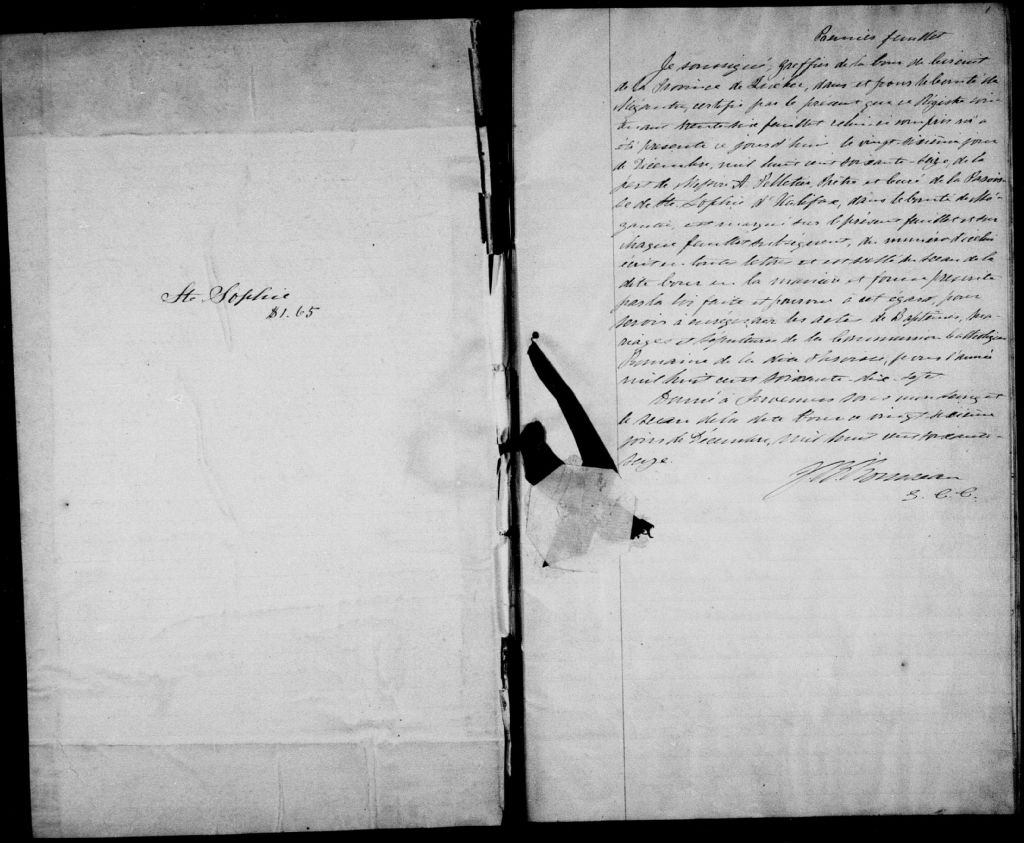 Ste Sophie
$1.65
1
Premier feuillet
Je soussigné, greffier de la Cour de Circuit
de la Province de Québec, dans et pour le Comté de
Mégantic, certifie par le présent que ce Régistre con-
tenant trente six feuillets celui-ci compris m'a
été présenté ce jourd'hui le vingt sixième jour
de Décembre, mil huit cent soixante-seize, de la
part de Messire A. Pelletier, Prêtre et Curé de la Parois-
se de Ste Sophie d'Halifax, dans le Comté de Mé-
gantic, et marqué sur le présent feuillet et sur
chaque feuillet subséquent, du numéro d'icelui
écrit en toute lettre et est scellé du sceau de la
dite Cour en la manière et forme prescrite
par la loi faite et pourvue à cet égard, pour
servir à enrégistrer les actes de Baptêmes, Ma-
riages et Sépultures de la Communion Catholique
Romaine de la dite Paroisse, pour l'année
mil huit cent soixante-dix-sept.
Donné à Inverness sous mon seing et
le sceau de la dite Cour ce vingt sixième
jour de Décembre, mil huit cent soixante-
seize.
C. C.